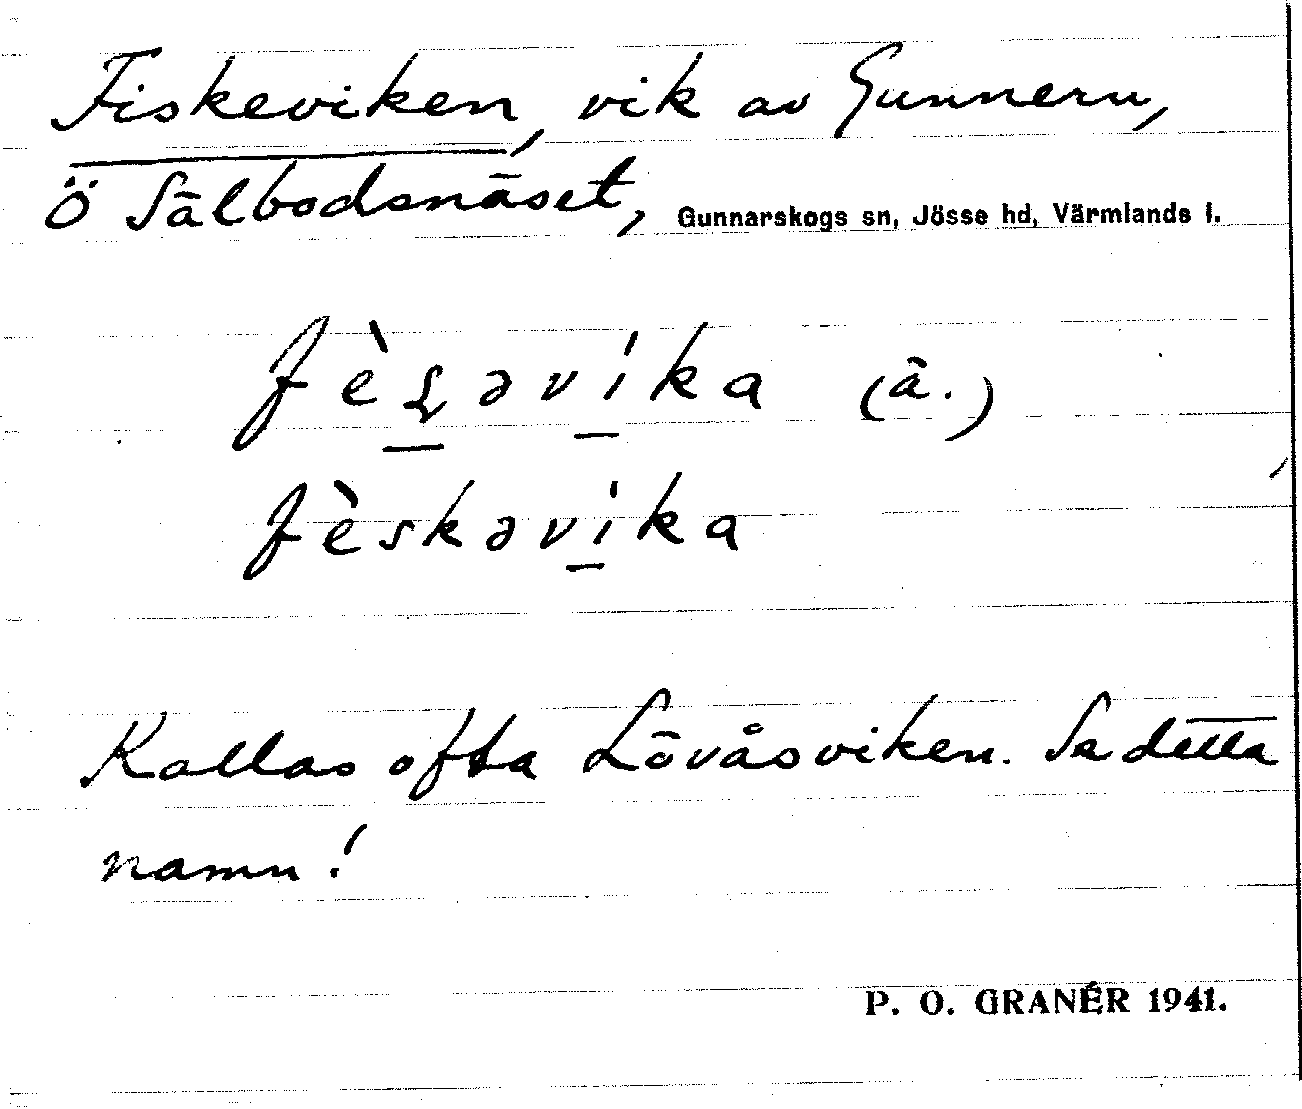 Fiskeviken, vik av Gunnern,
Ö Sälbodsnäset, Gunnarskogs sn, Jösse hd, Värmlands l.
fèʂəvíka (ä.)
fèskəvíka
Kallas ofta Lövåsviken. Se detta
namn!
P. O. GRANÉR 1941.